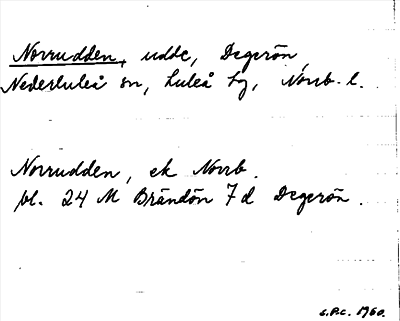 Norrudden, udde, Degerön,
Nederluleå sn, Luleå tg, Norrb. l.
Norrudden, ek Norrb.
bl. 24 M Brändön 7 d Degerön.
S.P.C. 1960.